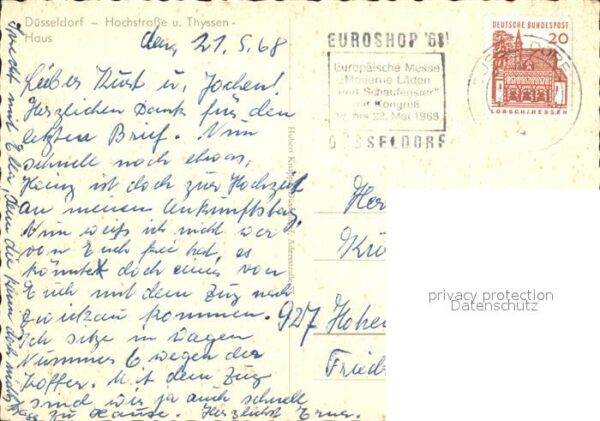 Düsseldorf – Hochstraße u. Thyssen-
Haus
den, 21.5.68
Lieber Kurt u. Jochen!
Herzlichen Dank für den
letzten Brief. Nun
schnell noch etwas,
Heinz ist doch zur Hochzeit
an meinen Ankunftstag.
Nun weiß ich nicht wer
von Euch frei hat, es
könnte doch einer von
Euch mit dem Zug nach
Zwickau kommen.
Ich sitze im Wagen
Nummer 6 wegen der
Koffer. Mit dem Zug
sind wir ja auch schnell
zu Hause. Herzlichst Erna.
EUROSHOP '68
Europäische Messe
„Moderne Läden
und Schaufenster"
mit Kongreß
bis 22. Mai 1968
DÜSSELDORF
DEUTSCHE BUNDESPOST
20
LORSCH/HESSEN
Her
Krö
927 Hohen
Fried
privacy protection
Datenschutz